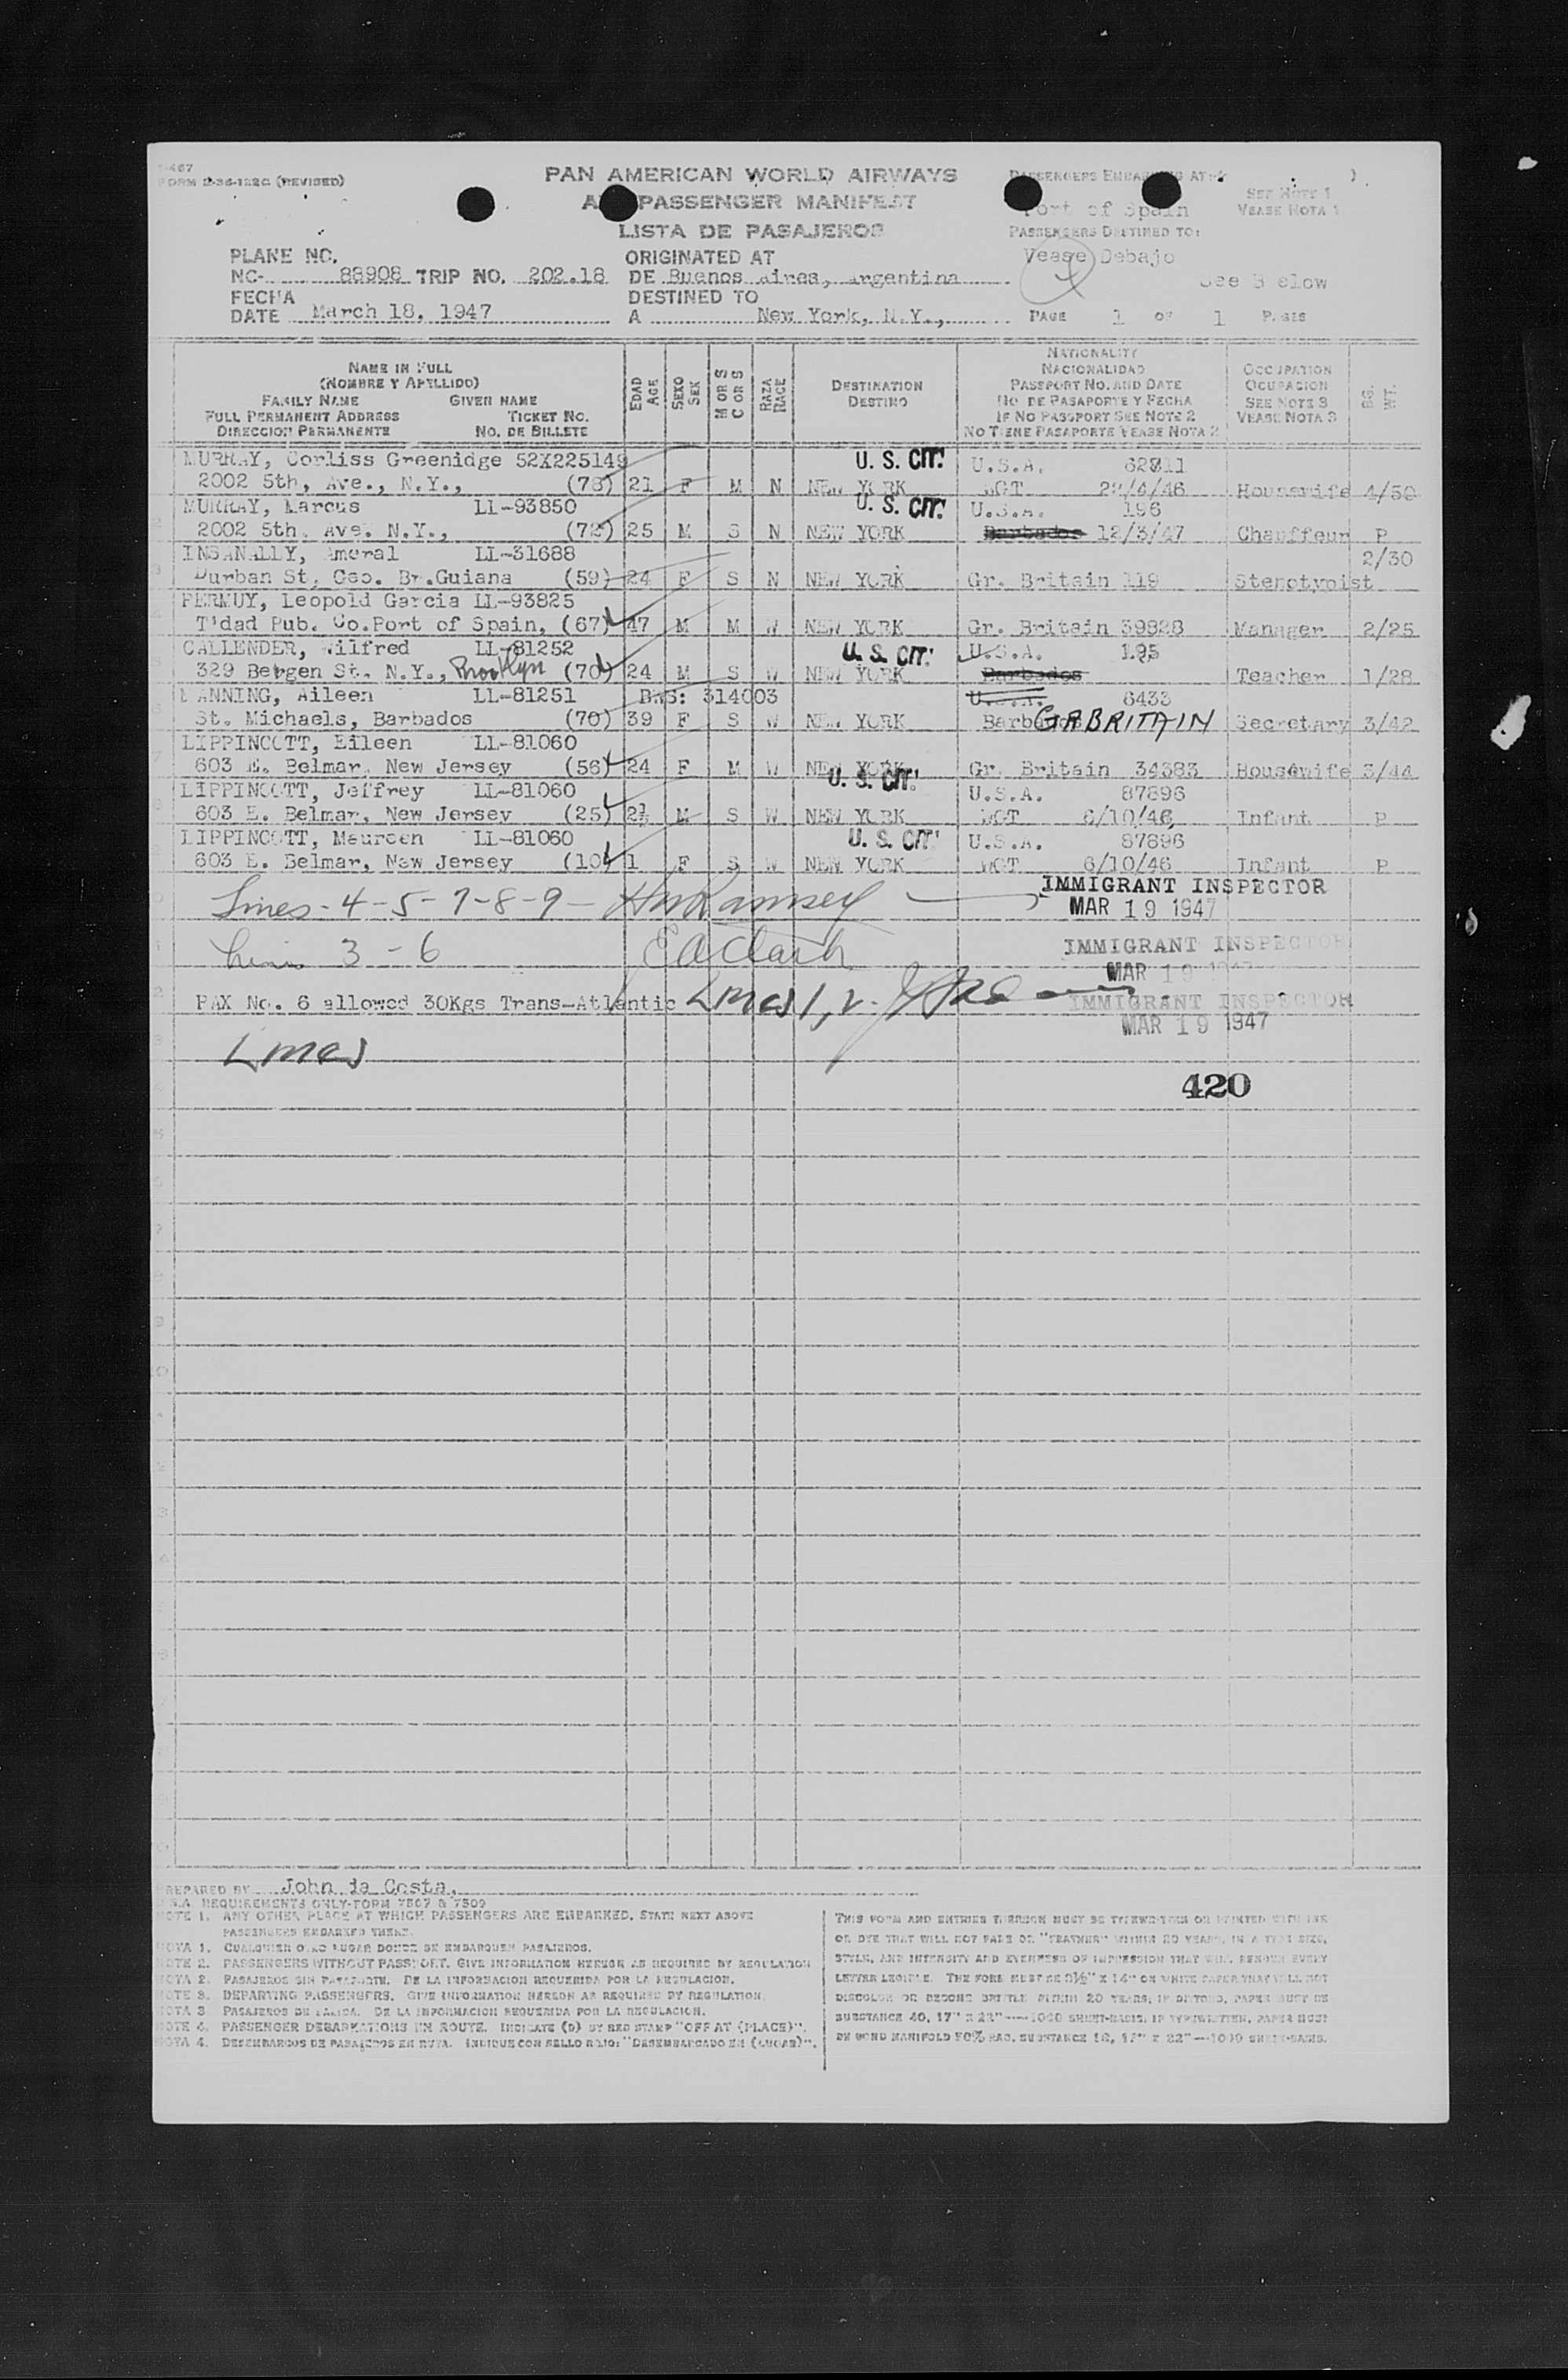 FORM 2-36-122C (REVISED)
PAN AMERICAN WORLD AIRWAYS
PASSENGER MANIFEST
LISTA DE PASAJEROS
PASSENGERS EMBARKING AT
SEE NOTE 1
VEASE NOTA 1
Port of Spain
PASSENGERS DESTINED TO:
Vease Debajo
See Below
PLANE NO.
NC- 88908 TRIP NO. 202.18
ORIGINATED AT
DE Buenos Aires, Argentina
FECHA
DATE March 18, 1947
DESTINED TO
A New York, N.Y.,
PAGE 1 OF 1 PAGES
NAME IN FULL
(NOMBRE Y APELLIDO)
FAMILY NAME GIVEN NAME
FULL PERMANENT ADDRESS TICKET NO.
DIRECCION PERMANENTE NO. DE BILLETE
EDAD
AGE
SEXO
SEX
M OR S
C OR S
RAZA
RACE
DESTINATION
DESTINO
NATIONALITY
NACIONALIDAD
PASSPORT NO. AND DATE
NO. DE PASAPORTE Y FECHA
IF NO PASSPORT SEE NOTE 2
NO TIENE PASAPORTE VEASE NOTA 2
OCCUPATION
OCUPACION
SEE NOTE 3
VEASE NOTA 3
BG.
WT.
MURRAY, Corliss Greenidge 52X225149 U. S. CIT. U.S.A.
2002 5th, Ave., N.Y., 21 F M N NEW YORK Housewife 4/50
MURRAY, Marcus LL-93850 U. S. CIT. U.S.A. 196
2002 5th. Ave. N.Y., 25 M S N NEW YORK Barbados 12/3/47 Chauffeur P
INSANALLY, Ameral LL-31688 2/30
Durban St, Geo. Br.Guiana (59) 24 F S N NEW YORK Gr. Britain 119 Stenotypist
PERMUY, Leopold Garcia LL-93825
T'dad Pub. Co.Port of Spain, (67) 47 M M W NEW YORK Gr. Britain 39828 Manager 2/25
CALLENDER, Wilfred LL-81252 U. S. CIT. U.S.A. 195
329 Bergen St. N.Y., Brooklyn (70) 24 M S W NEW YORK Barbados Teacher 1/28
MANNING, Aileen LL-81251 BWS: 314003 U.S.A. 6433
St. Michaels, Barbados (70) 39 F S W NEW YORK Barbados GR BRITAIN Secretary 3/42
LIPPINCOTT, Eileen LL-81060
603 E. Belmar, New Jersey (56) 24 F M W NEW YORK Gr. Britain 34383 Housewife 3/44
LIPPINCOTT, Jeffrey LL-81060 U. S. CIT. U.S.A. 87896
603 E. Belmar, New Jersey (25) 2½ M S W NEW YORK WGT 6/10/46 Infant P
LIPPINCOTT, Maureen LL-81060 U. S. CIT. U.S.A. 87896
603 E. Belmar, New Jersey (10) 1 F S W NEW YORK WGT 6/10/46 Infant P
Lines - 4 - 5 - 7 - 8 - 9 - Ramsey IMMIGRANT INSPECTOR
MAR 19 1947
Lines 3 - 6 E A Clark IMMIGRANT INSPECTOR
MAR 19 1947
PAX No. 6 allowed 30Kgs Trans-Atlantic Lines 1, 2. IMMIGRANT INSPECTOR
MAR 19 1947
Lines
420
PREPARED BY John da Costa.
U.S.A. REQUIREMENTS ONLY-FORM 7507 & 7509
NOTE 1. ANY OTHER PLACE AT WHICH PASSENGERS ARE EMBARKED, STATE NEXT ABOVE
PASSENGERS EMBARKED THERE.
NOTA 1. CUALQUIER OTRO LUGAR DONDE SE EMBARQUEN PASAJEROS.
NOTE 2. PASSENGERS WITHOUT PASSPORT. GIVE INFORMATION HEREON AS REQUIRED BY REGULATION
NOTA 2. PASAJEROS SIN PASAPORTE. DE LA INFORMACION REQUERIDA POR LA REGULACION.
NOTE 3. DEPARTING PASSENGERS. GIVE INFORMATION HEREON AS REQUIRED BY REGULATION.
NOTA 3 PASAJEROS DE SALIDA. DE LA INFORMACION REQUERIDA POR LA REGULACION.
NOTE 4. PASSENGER DEBARKATIONS EN ROUTE. INDICATE (D) BY RED STAMP "OFF AT (PLACE)".
NOTA 4. DESEMBARCOS DE PASAJEROS EN RUTA. INDIQUE CON SELLO ROJO: "DESEMBARCADO EN (LUGAR)".
THIS FORM AND ENTRIES THEREON MUST BE TYPEWRITTEN OR PRINTED WITH INK
OR DYE THAT WILL NOT FADE OR "FEATHER" WITHIN 20 YEARS, IN A TYPE SIZE,
STYLE, AND INTENSITY AND EVENNESS OF IMPRESSION THAT WILL RENDER EVERY
LETTER LEGIBLE. THE FORM MUST BE 8½" X 14" ON WHITE PAPER THAT WILL NOT
DISCOLOR OR BECOME BRITTLE WITHIN 20 YEARS; IF DITTOED, PAPER MUST BE
SUBSTANCE 40, 17" X 22"—1000 SHEET-BASIS. IF TYPEWRITTEN, PAPER MUST
BE BOND MANIFOLD 50% RAG, SUBSTANCE 16, 17" X 22"—1000 SHEET-BASIS.